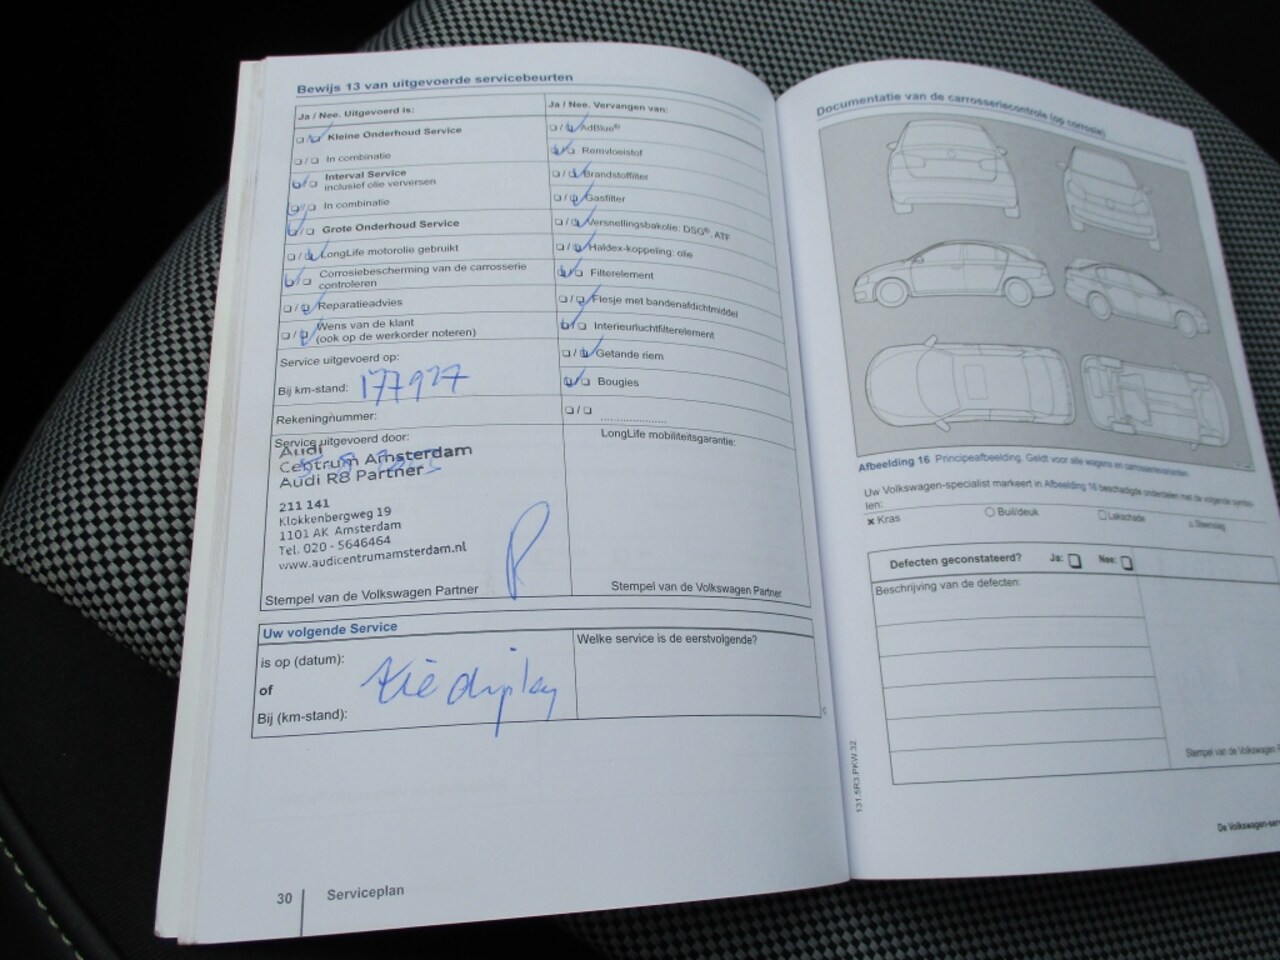 Bewijs 13 van uitgevoerde servicebeurten
Ja / Nee. Uitgevoerd is:
Kleine Onderhoud Service
In combinatie
Interval Service
inclusief olie verversen
In combinatie
Grote Onderhoud Service
LongLife motorolie gebruikt
Corrosiebescherming van de carrosserie
controleren
Reparatieadvies
Wens van de klant
(ook op de werkorder noteren)
Service uitgevoerd op:
Bij km-stand: 177927
Rekeningnummer:
Service uitgevoerd door:
Audi
Centrum Amsterdam
Audi R8 Partner
211 141
Klokkenbergweg 19
1101 AK Amsterdam
Tel. 020 - 5646464
www.audicentrumamsterdam.nl
Stempel van de Volkswagen Partner
Ja / Nee. Vervangen van:
AdBlue®
Remvloeistof
Brandstoffilter
Gasfilter
Versnellingsbakolie: DSG®, ATF
Haldex-koppeling: olie
Filterelement
Flesje met bandenafdichtmiddel
Interieurluchtfilterelement
Getande riem
Bougies
LongLife mobiliteitsgarantie:
Stempel van de Volkswagen Partner
Uw volgende Service
is op (datum):
of
Bij (km-stand):
zie display
Welke service is de eerstvolgende?
30 Serviceplan
Documentatie van de carrosseriecontrole (op corrosie)
Afbeelding 16 Principeafbeelding. Geldt voor alle wagens en carrosserievarianten.
Uw Volkswagen-specialist markeert in Afbeelding 16 beschadigde onderdelen met de volgende symbo-
len:
× Kras
Buil/deuk
Lakschade
Steenslag
Defecten geconstateerd? Ja: Nee:
Beschrijving van de defecten:
Stempel van de Volkswagen
131.5R3.PKW.32
De Volkswagen-ser